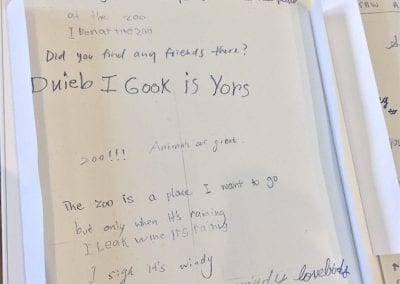 at the zoo
I Benattnezoo
Did you find any friends there?
Dnieb I Gook is Yors
zoo!!! Animals are great.
The zoo is a place I want to go
but only when It's raining
I Leak wine It's raing
I sigh It's windy
lovebirds
SAW A